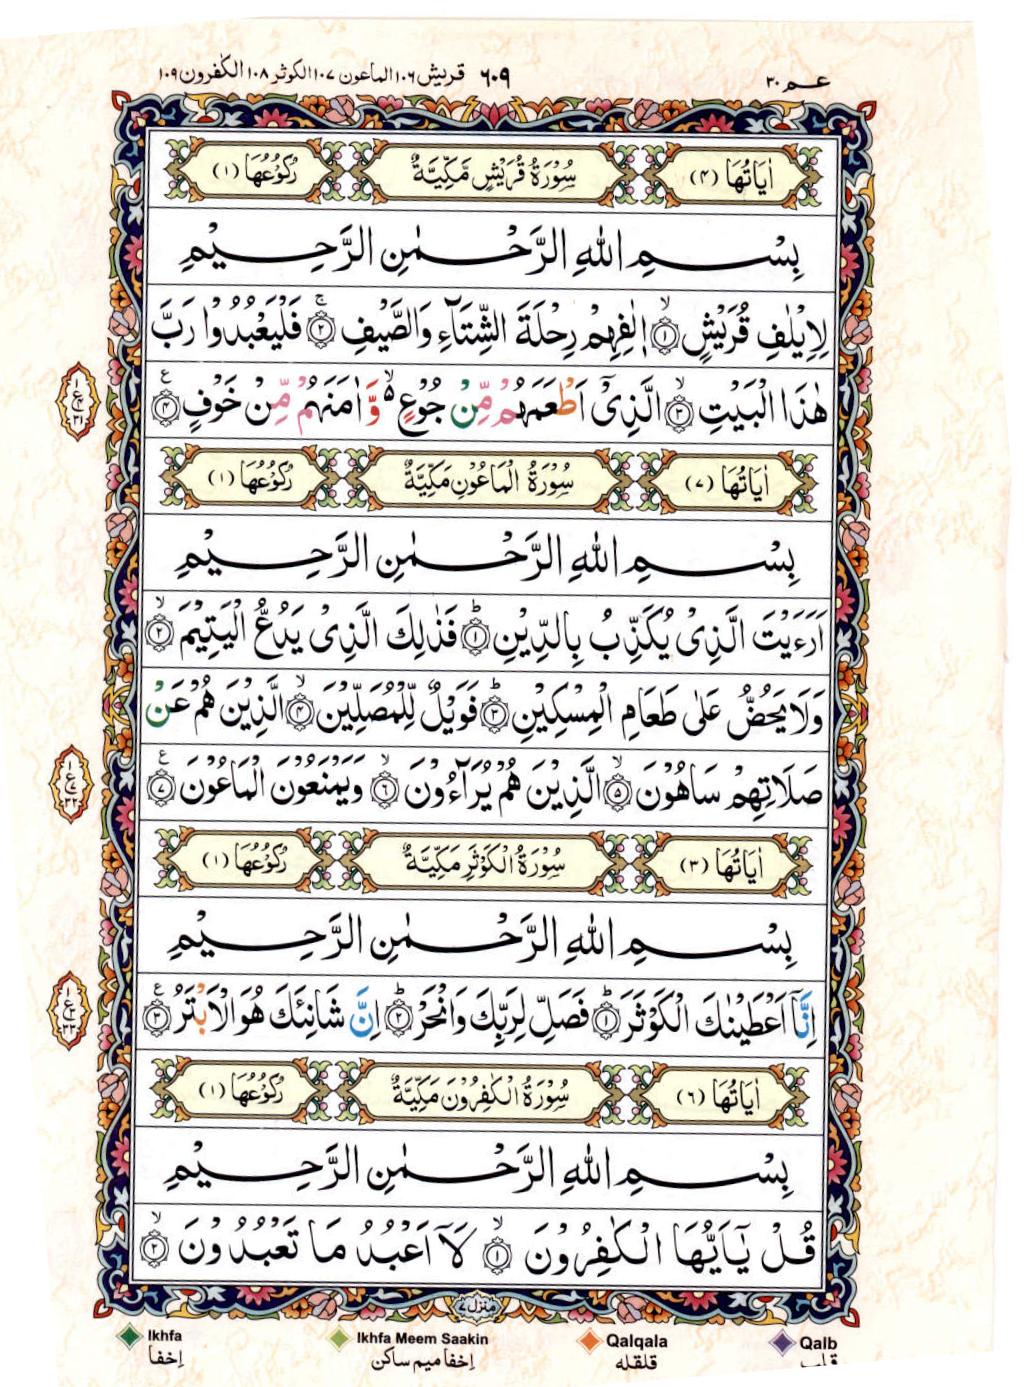 عـم ٣٠ ٦٠٩ قريش ١٠٦ الماعون ١٠٧ الكوثر ١٠٨ الكٰفرون ١٠٩
اٰيَاتُهَا (٤) سُوْرَةُ قُرَيْشٍ مَّكِّيَّةٌ رُكُوْعُهَا (١)
بِسْمِ اللّٰهِ الرَّحْمٰنِ الرَّحِيْمِ
لِاِيْلٰفِ قُرَيْشٍ ۙ﴿١﴾ اٖلٰفِهِمْ رِحْلَةَ الشِّتَآءِ وَالصَّيْفِ ۚ﴿٢﴾ فَلْيَعْبُدُوْا رَبَّ
هٰذَا الْبَيْتِ ۙ﴿٣﴾ الَّذِيْٓ اَطْعَمَهُمْ مِّنْ جُوْعٍ ۙ۬ وَّاٰمَنَهُمْ مِّنْ خَوْفٍ ﴿٤﴾ ع
ع ١ ٤ ٣١
اٰيَاتُهَا (٧) سُوْرَةُ الْمَاعُوْنِ مَكِّيَّةٌ رُكُوْعُهَا (١)
بِسْمِ اللّٰهِ الرَّحْمٰنِ الرَّحِيْمِ
اَرَءَيْتَ الَّذِيْ يُكَذِّبُ بِالدِّيْنِ ؕ﴿١﴾ فَذٰلِكَ الَّذِيْ يَدُعُّ الْيَتِيْمَ ۙ﴿٢﴾
وَلَا يَحُضُّ عَلٰى طَعَامِ الْمِسْكِيْنِ ؕ﴿٣﴾ فَوَيْلٌ لِّلْمُصَلِّيْنَ ۙ﴿٤﴾ الَّذِيْنَ هُمْ عَنْ
صَلَاتِهِمْ سَاهُوْنَ ۙ﴿٥﴾ الَّذِيْنَ هُمْ يُرَآءُوْنَ ۙ﴿٦﴾ وَيَمْنَعُوْنَ الْمَاعُوْنَ ﴿٧﴾ ع
ع ١ ٧ ٣٢
اٰيَاتُهَا (٣) سُوْرَةُ الْكَوْثَرِ مَكِّيَّةٌ رُكُوْعُهَا (١)
بِسْمِ اللّٰهِ الرَّحْمٰنِ الرَّحِيْمِ
اِنَّآ اَعْطَيْنٰكَ الْكَوْثَرَ ؕ﴿١﴾ فَصَلِّ لِرَبِّكَ وَانْحَرْ ؕ﴿٢﴾ اِنَّ شَانِئَكَ هُوَ الْاَبْتَرُ ﴿٣﴾ ع
ع ١ ٣ ٣٣
اٰيَاتُهَا (٦) سُوْرَةُ الْكٰفِرُوْنَ مَكِّيَّةٌ رُكُوْعُهَا (١)
بِسْمِ اللّٰهِ الرَّحْمٰنِ الرَّحِيْمِ
قُلْ يٰٓاَيُّهَا الْكٰفِرُوْنَ ۙ﴿١﴾ لَآ اَعْبُدُ مَا تَعْبُدُوْنَ ۙ﴿٢﴾
منزل ٧
Ikhfa Ikhfa Meem Saakin Qalqala Qalb
اِخفا اِخفا میم ساکن قلقله